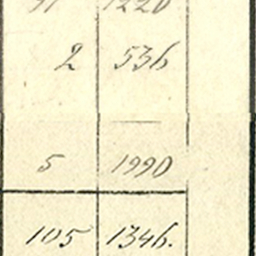 2 536
5 1990
105 1346.